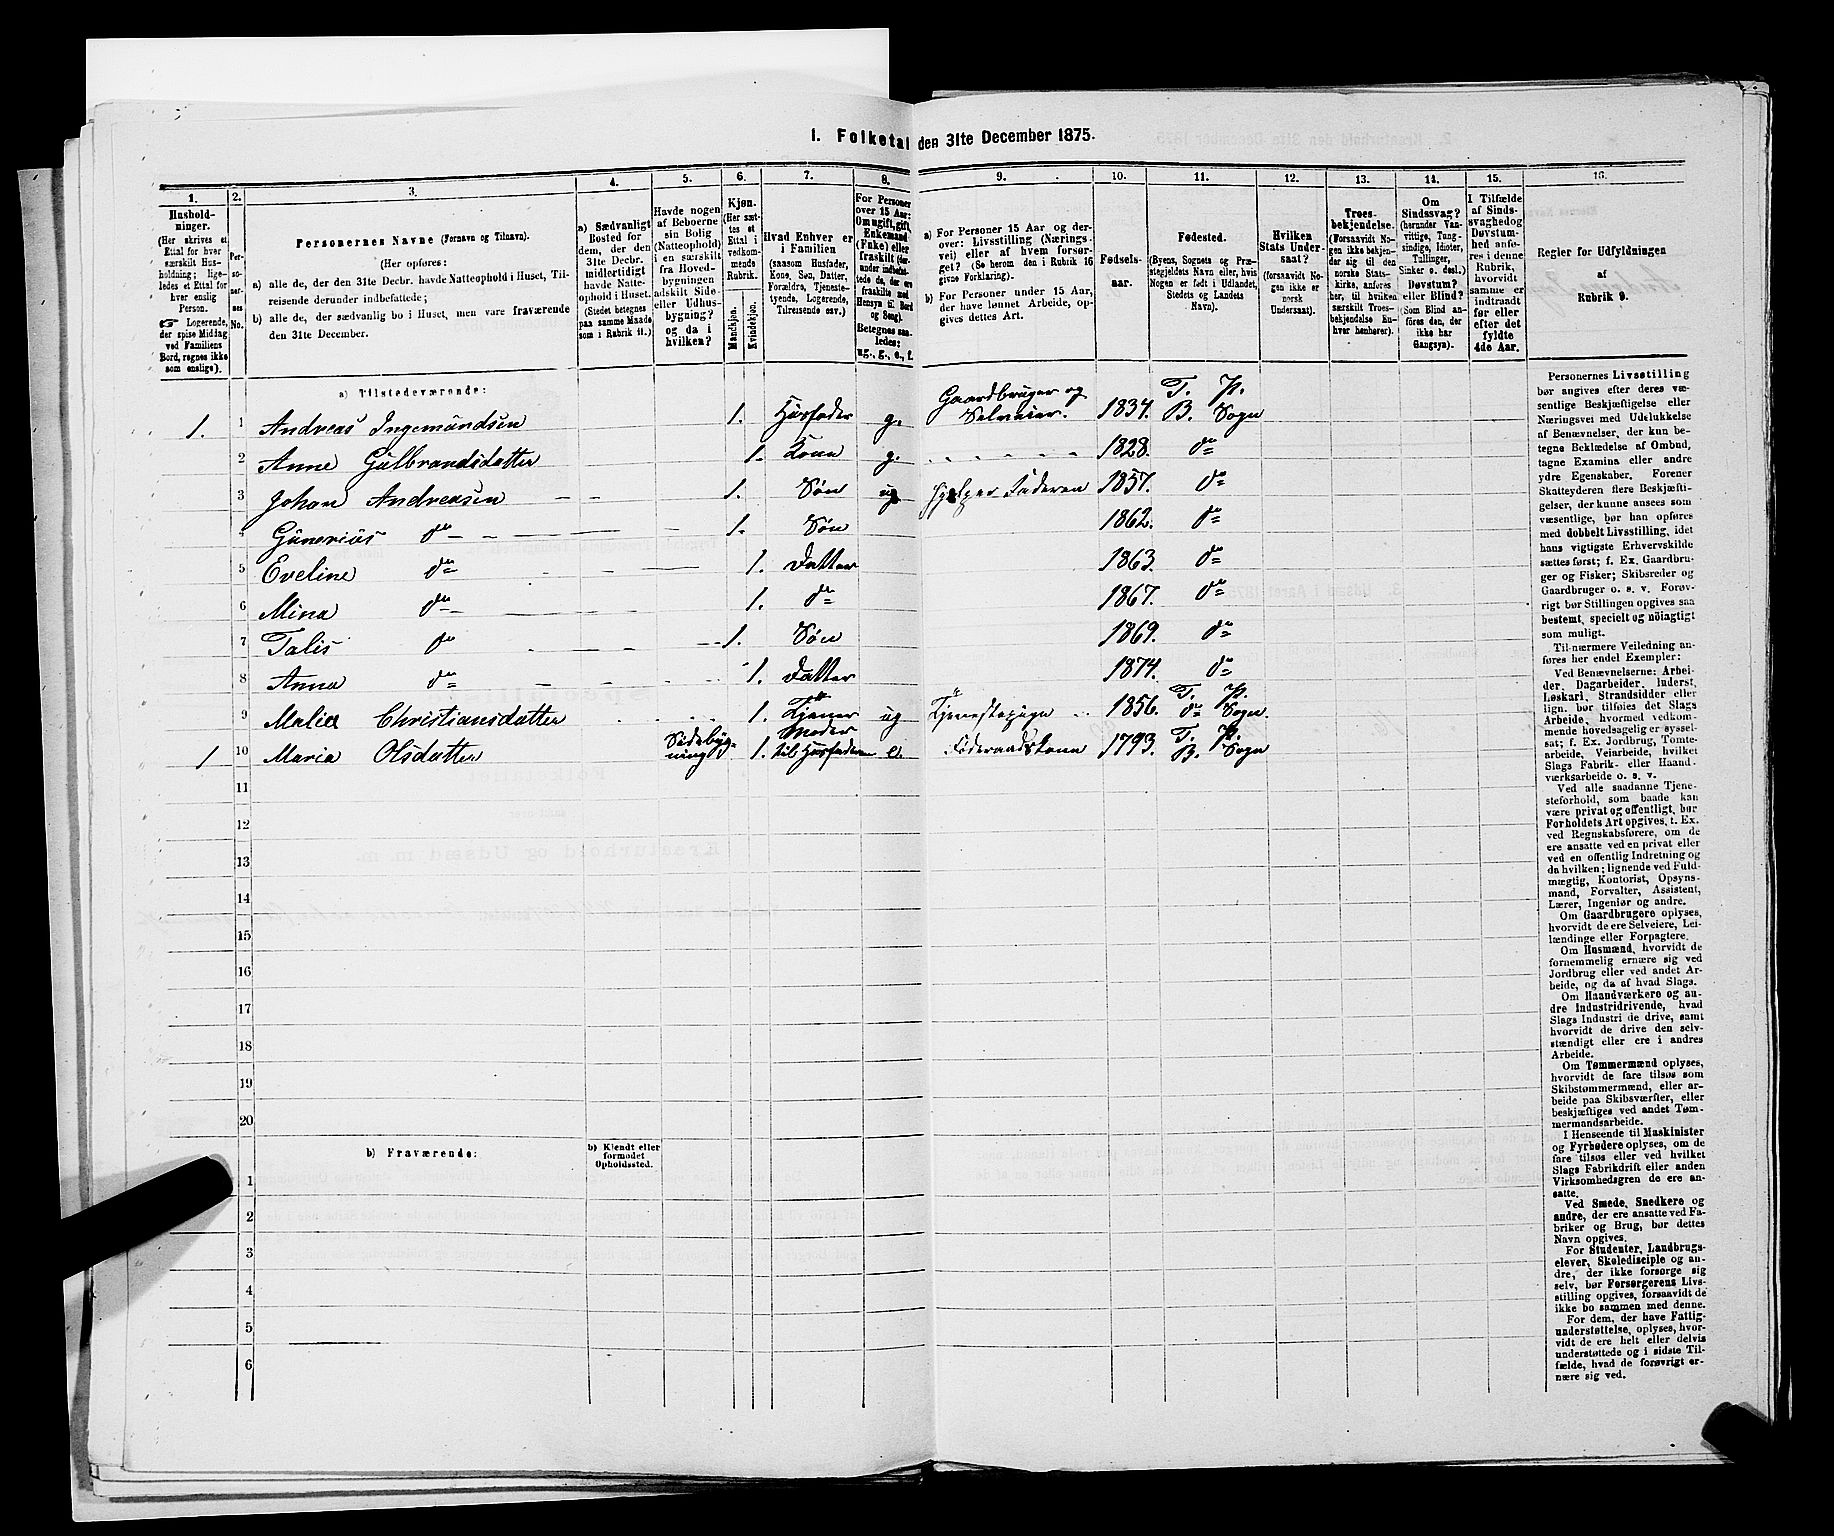 1. Folketal den 31te December 1875.
1. 2. 3. 4. 5. 6. 7. 8. 9. 10. 11. 12. 13. 14. 15. 16.
Hushold-
ninger.
(Her skrives et
Ettal for hver
særskilt Hus-
holdning; lige-
ledes et Ettal for
hver enslig
Person.
☞ Logerende,
der spise Middag
ved Familiens
Bord, regnes ikke
som enslige).
Per-
so-
ner-
nes
No.
Personernes Navne (Fornavn og Tilnavn).
(Her opføres:
a) alle de, der den 31te Decbr. havde Natteophold i Huset, Til-
reisende derunder indbefattede;
b) alle de, der sædvanlig bo i Huset, men vare fraværende
den 31te December.
a) Sædvanligt
Bosted for
dem, der den
31te Decbr.
midlertidigt
havde Natte-
ophold i Huset.
(Stedet betegnes
paa samme Maade
som i Rubrik 11.)
Havde nogen
af Beboerne
sin Bolig
(Natteophold)
i en særskilt
fra Hoved-
bygningen
adskilt Side-
eller Udhus-
bygning?
og da i
hvilken?
Kjøn.
(Her sæt-
tes et
Ettal i
vedkom-
mende
Rubrik.
Mandkjøn.
Kvindekjøn.
Hvad Enhver er
i Familien
(saasom Husfader,
Kone, Søn, Datter,
Forældre, Tjeneste-
tyende, Logerende,
Tilreisende osv.)
For Personer
over 15 Aar:
Om ugift, gift,
Enkemand
(Enke) eller
fraskilt (her-
under indbefat-
tede de, der ere
fraskilte med
Hensyn til Bord
og Seng).
Betegnes saa-
ledes:
ug., g., e., f.
a) For Personer 15 Aar og der-
over: Livsstilling (Nærings-
vei) eller af hvem forsør-
get? (Se herom den i Rubrik 16
givne Forklaring).
b) For Personer under 15 Aar,
der have lønnet Arbeide, op-
gives dettes Art.
Fødsels-
aar.
Fødested.
(Byens, Sognets og Præ-
stegjeldets Navn eller, hvis
Nogen er født i Udlandet,
Stedets og Landets
Navn).
Hvilken
Stats Under-
saat?
(forsaavidt No-
gen ikke er
norsk
Undersaat).
Troes-
bekjendelse.
(Forsaavidt No-
gen ikke bekjen-
der sig til den
norske Stats-
kirke, anføres
her, til hvilken
særskilt Troes-
bekjendelse En-
hver henhører).
Om
Sindssvag?
(herunder Van-
vittige, Tung-
sindige, Idioter,
Tullinger,
Sinker o. desl.)
Døvstum?
eller Blind?
(Som Blind an-
føres den, der
ikke har
Gangsyn).
I Tilfælde
af Sinds-
svaghed og
Døvstum-
hed anfø-
res i denne
Rubrik,
hvorvidt
samme er
indtraadt
før eller
efter det
fyldte
4de Aar.
Regler for Udfyldningen
af
Rubrik 9.
a) Tilstedeværende:
1. 1 Andreas Ingemundsen 1. Husfader g. Gaardbruger og Selveier. 1834. T. P. B. Sogn
2 Anne Gulbrandsdatter 1. Kone g. 1828. do
3 Johan Andreasen 1. Søn ug Hjelper Faderen 1857. do
4 Gunerius do 1. Søn 1862. do
5 Eveline do 1. Datter 1863. do
6 Mina do 1. do 1867. do
7 Talis do 1. Søn 1869. do
8 Anna do 1. Datter 1874. do
9 Malia Christiansdatter 1. Tjener ug Tjenestepige 1856. T. P. do Sogn.
1 10 Maria Olsdatter Sidebyg-
ning 1. Moder til Husfaderen e. Føderaadskone 1793. T. P. B. Sogn
11
12
13
14
15
16
17
18
19
20
b) Fraværende:
b) Kjendt eller
formodet
Opholdssted.
1
2
3
4
5
6
Personernes Livsstilling
bør angives efter deres væ-
sentlige Beskjæftigelse eller
Næringsvei med Udelukkelse
af Benævnelser, der kun be-
tegne Beklædelse af Ombud,
tagne Examina eller andre
ydre Egenskaber. Forener
Skatteyderen flere Beskjæfti-
gelser, der kunne ansees som
væsentlige, bør han opføres
med dobbelt Livsstilling, idet
hans vigtigste Erhvervskilde
sættes først; f. Ex. Gaardbru-
ger og Fisker; Skibsreder og
Gaardbruger o. s. v. Forøv-
rigt bør Stillingen opgives saa
bestemt, specielt og nöiagtigt
som muligt.
Til nærmere Veiledning an-
føres her endel Exempler:
Ved Benævnelserne: Arbei-
der, Dagarbeider, Inderst,
Løskarl, Strandsidder eller
lign. bør tilføies det Slags
Arbeide, hvormed vedkom-
mende hovedsagelig er syssel-
sat; f. Ex. Jordbrug, Tomte-
arbeide, Veiarbeide, hvilket
Slags Fabrik- eller Haand-
værksarbeide o. s. v.
Ved alle saadanne Tjene-
steforhold, som baade kan
være privat og offentligt, bør
Forholdets Art opgives, t. Ex.
ved Regnskabsførere, om de
ere ansatte ved en privat eller
ved en offentlig Indretning og
da hvilken; lignende ved Fuld-
mægtig, Kontorist, Opsyns-
mand, Forvalter, Assistent,
Lærer, Ingeniør og andre.
Om Gaardbrugere oplyses,
hvorvidt de ere Selveiere, Lei-
lændinge eller Forpagtere.
Om Husmænd, hvorvidt de
fornemmelig ernære sig ved
Jordbrug eller ved andet Ar-
beide, og da af hvad Slags.
Om Haandværkere og an-
dre Industridrivende, hvad
Slags Industri de drive, samt
hvorvidt de drive den selv-
stændigt eller ere i andres
Arbeide.
Om Tømmermænd oplyses,
hvorvidt de fare tilsøs som
Skibstømmermænd, eller ar-
beide paa Skibsværfter, eller
beskjæftiges ved andet Tøm-
mermandsarbeide.
I Henseende til Maskinister
og Fyrbødere oplyses, om de
fare tilsøs eller ved hvilket
Slags Fabrikdrift eller anden
Virksomhedsgren de ere an-
satte.
Ved Smede, Snedkere og
andre, der ere ansatte ved Fa-
briker og Brug, bør dettes
Navn opgives.
For Studenter, Landbrugs-
elever, Skoledisciple og an-
dre, der ikke forsørge sig
selv, bør Forsørgerens Livs-
stilling opgives, forsaavidt de
ikke bo sammen med denne.
For dem, der have Fattig-
understøttelse, oplyses, hvor-
vidt de ere helt eller delvis
understøttede og i sidste Til-
fælde, hvad de forøvrigt er-
nære sig ved.